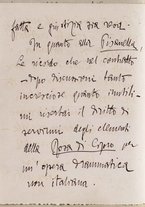 fatta e giustizia sia resa.
In quanto alla Pisanella,
Le ricordo che nel contratto
- dopo discussioni tanto
incresciose quanto inutili -
mi riserbai il diritto di
servirmi degli elementi
della Rosa di Cipro per
un'opera drammatica
non italiana.